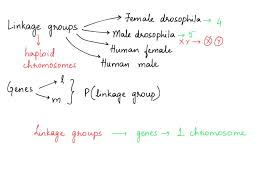 Female drosophila → 4
Linkage groups → Male drosophila → 5
XY → X Y
haploid chromosomes
Human female
Human male
Genes l
m } P(linkage group)
Linkage groups → genes → 1 chromosome